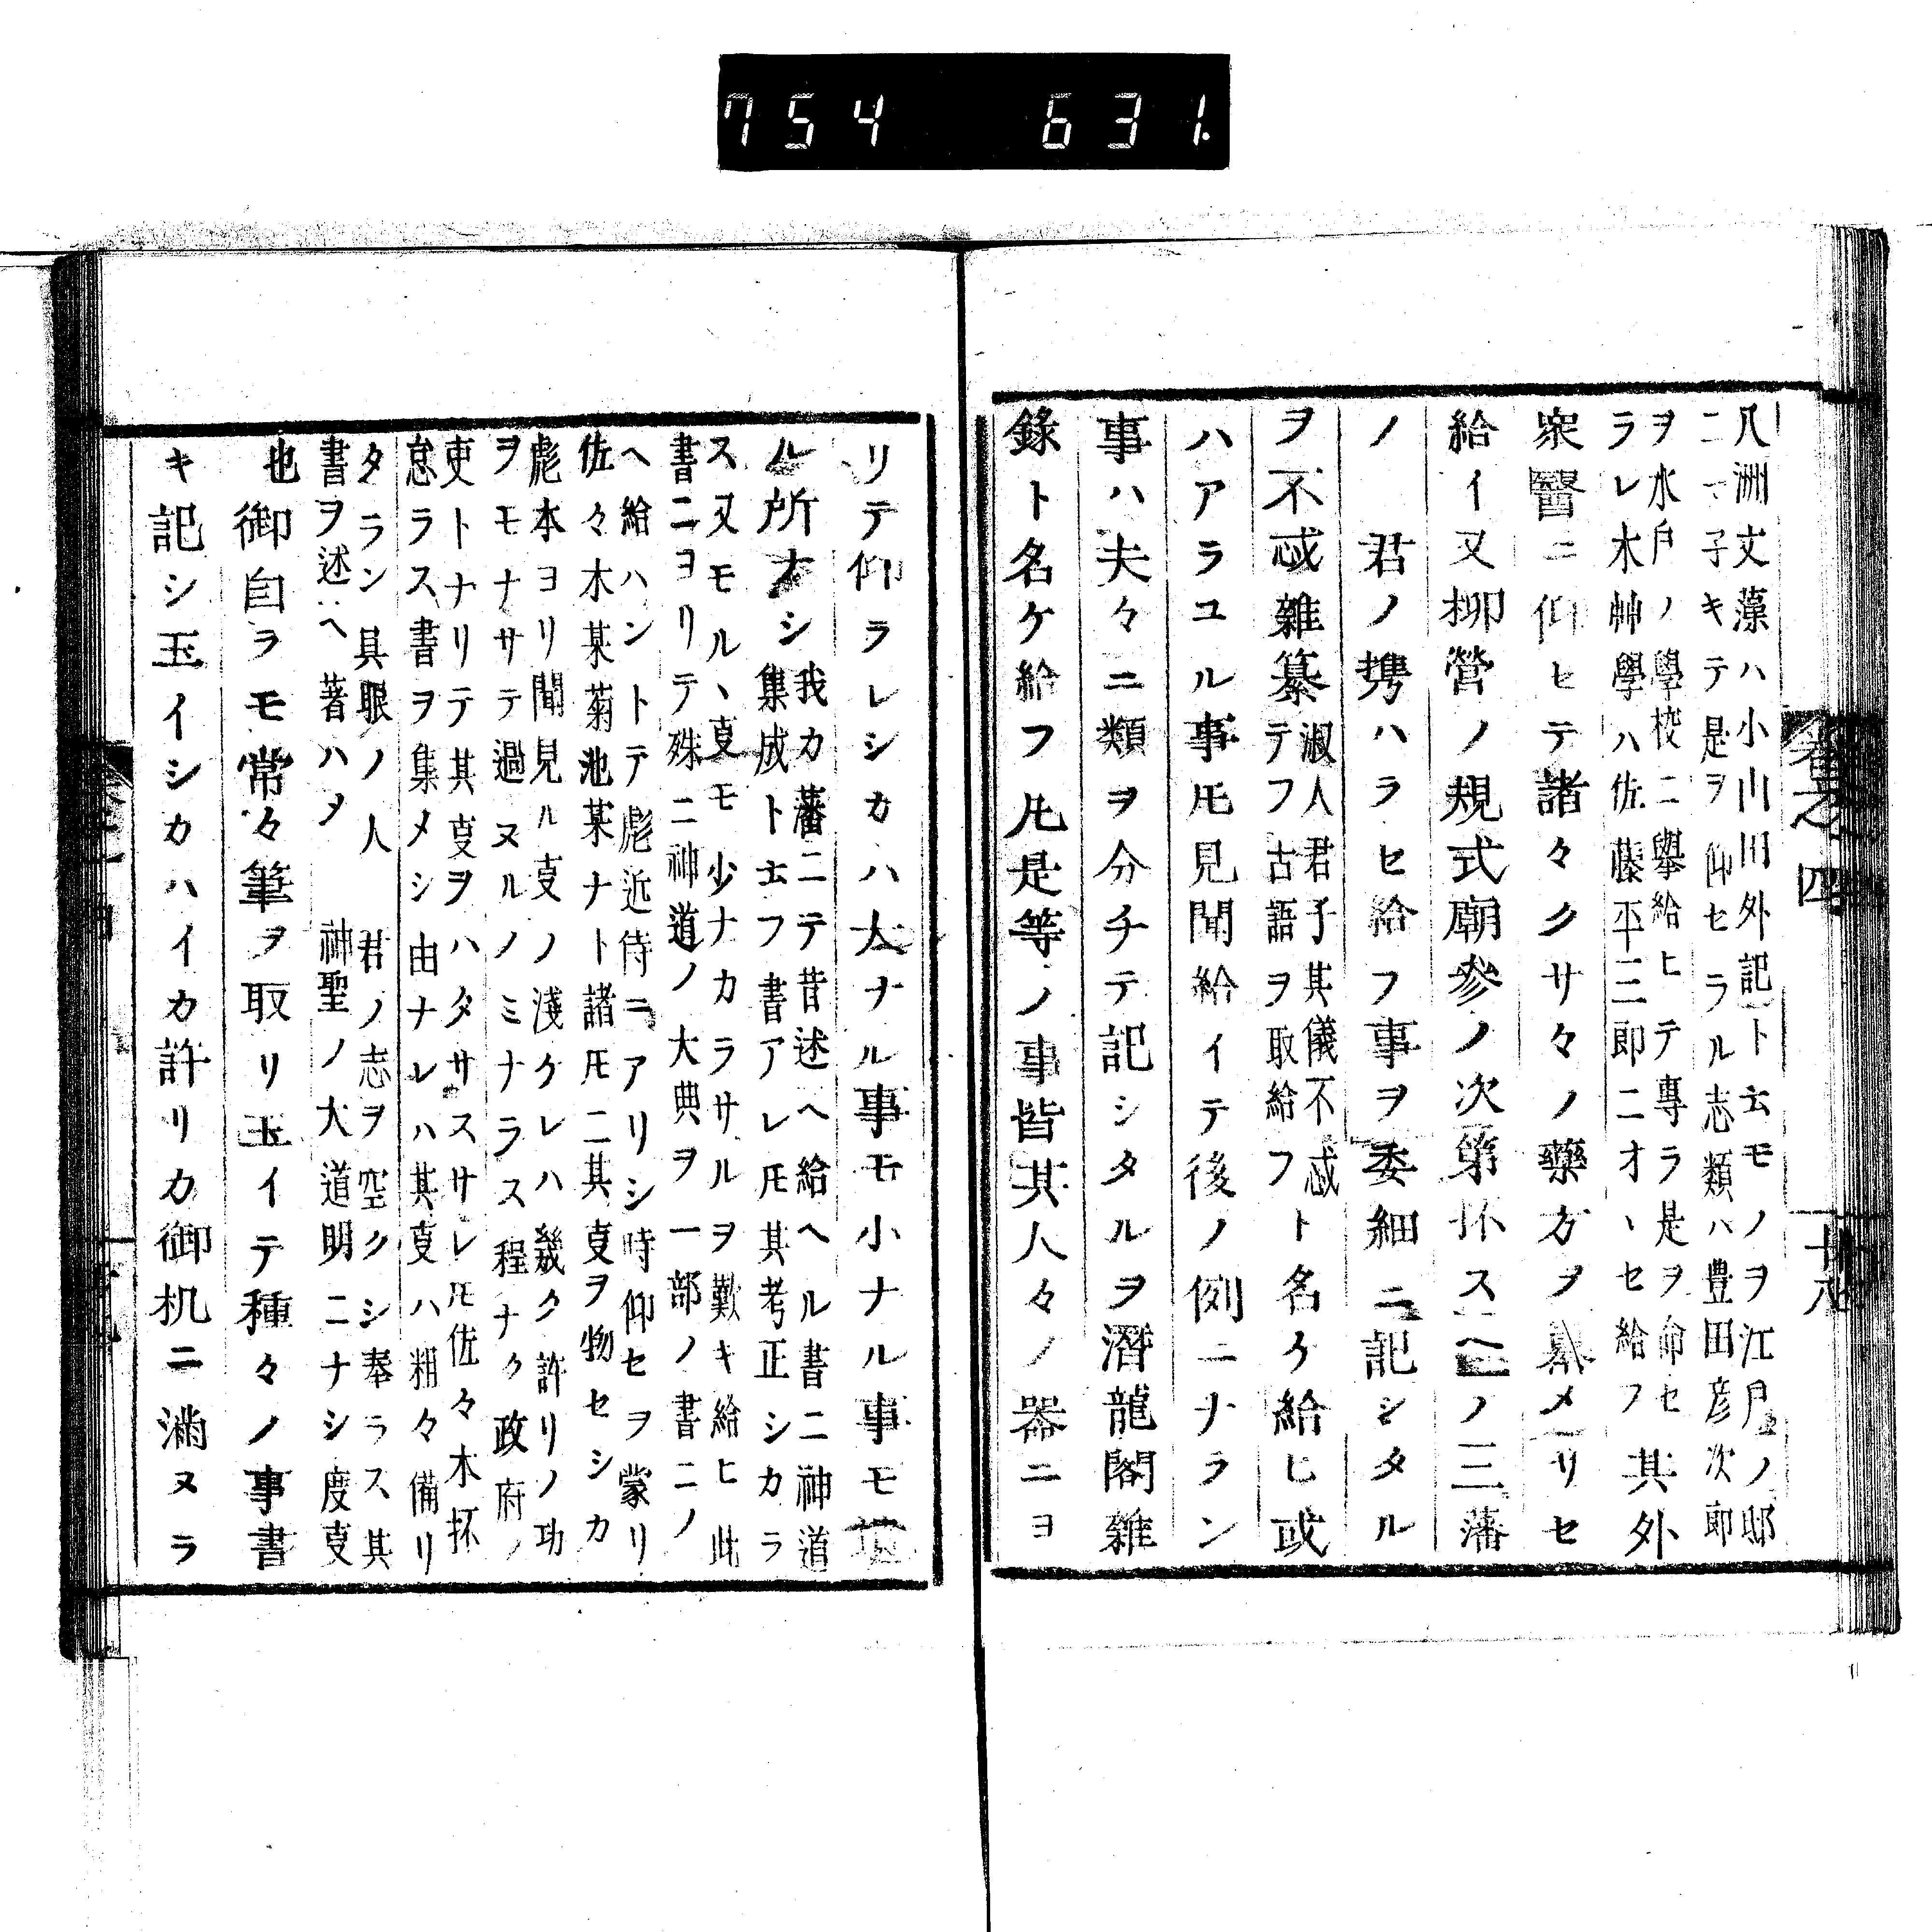 754 631.
卷之四 十八
八洲文藻ハ小山田外記ト云モノヲ江戸ノ邸
ニ子キテ是ヲ仰セラル志類ハ豊田彦次郎
ヲ水戸ノ學校ニ擧給ヒテ專ラ是ヲ命セ
ラレ木艸學ハ佐藤平三郎ニオヽセ給フ其外
衆醫ニ仰セテ諸々クサ々ノ藥方ヲ纂メリセ
給イ又柳營ノ規式廟參ノ次第抔スヘノ三藩
ノ 君ノ携ハラセ給フ事ヲ委細ニ記シタル
ヲ不忒雜纂
淑人君子其儀不忒
テフ古語ヲ取給フ
ト名ケ給ヒ或
ハアラユル事𪜈見聞給イテ後ノ例ニナラン
事ハ夫々ニ類ヲ分チテ記シタルヲ潛龍閣雜
錄ト名ケ給フ凡是等ノ事皆其人々ノ器ニヨ
リテ仰ラレシカハ大ナル事モ小ナル事モ
ル所ナシ
我カ藩ニテ昔述ヘ給ヘル書ニ神道
集成ト云フ書アレ𪜈其考正シカラ
ス又モルヽ叓モ少ナカラサルヲ歎キ給ヒ此
書ニヨリテ殊ニ神道ノ大典ヲ一部ノ書ニノ
ヘ給ハントテ彪近侍ニアリシ時仰セヲ蒙リ
佐々木某菊池某ナト諸𪜈ニ其叓ヲ物セシカ
彪本ヨリ聞見ル叓ノ淺ケレハ幾ク許リノ功
ヲモナサテ過ヌルノミナラス程ナク政府ノ
吏トナリテ其叓ヲハタサスサレ𪜈佐々木抔
怠ラス書ヲ集メシ由ナレハ其叓ハ粗々備リ
タラン具眼ノ人 君ノ志ヲ空クシ奉ラス其
書ヲ述ヘ著ハタ 神聖ノ大道明ニナシ度叓
也
御自ラモ常々筆ヲ取リ玉イテ種々ノ事書
キ記シ玉イシカハイカ許リカ御机ニ滿ヌラ